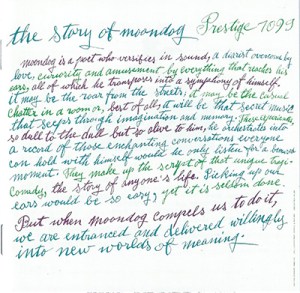 the story of moondog Prestige 7099
moondog is a poet who versifies in sound, a diarist overcome by
love, curiosity and amusement by everything that reaches his
ears, all of which he transposes into a symphony of himself.
it may be the roar from the streets, it may be the casual
chatter in a room or, best of all, it will be that secret music
that seeps through imagination and memory. These appearances
so dull to the dull but so alive to him, he orchestrates into
a record of those enchanting conversations everyone
can hold with himself would he only listen for a beware
moment. They make up the script of that unique tragi-
comedy, the story of anyone's life. Picking up our
ears would be so easy; yet it is seldom done.
But when moondog compels us to do it,
we are entranced and delivered willingly
into new worlds of meaning.